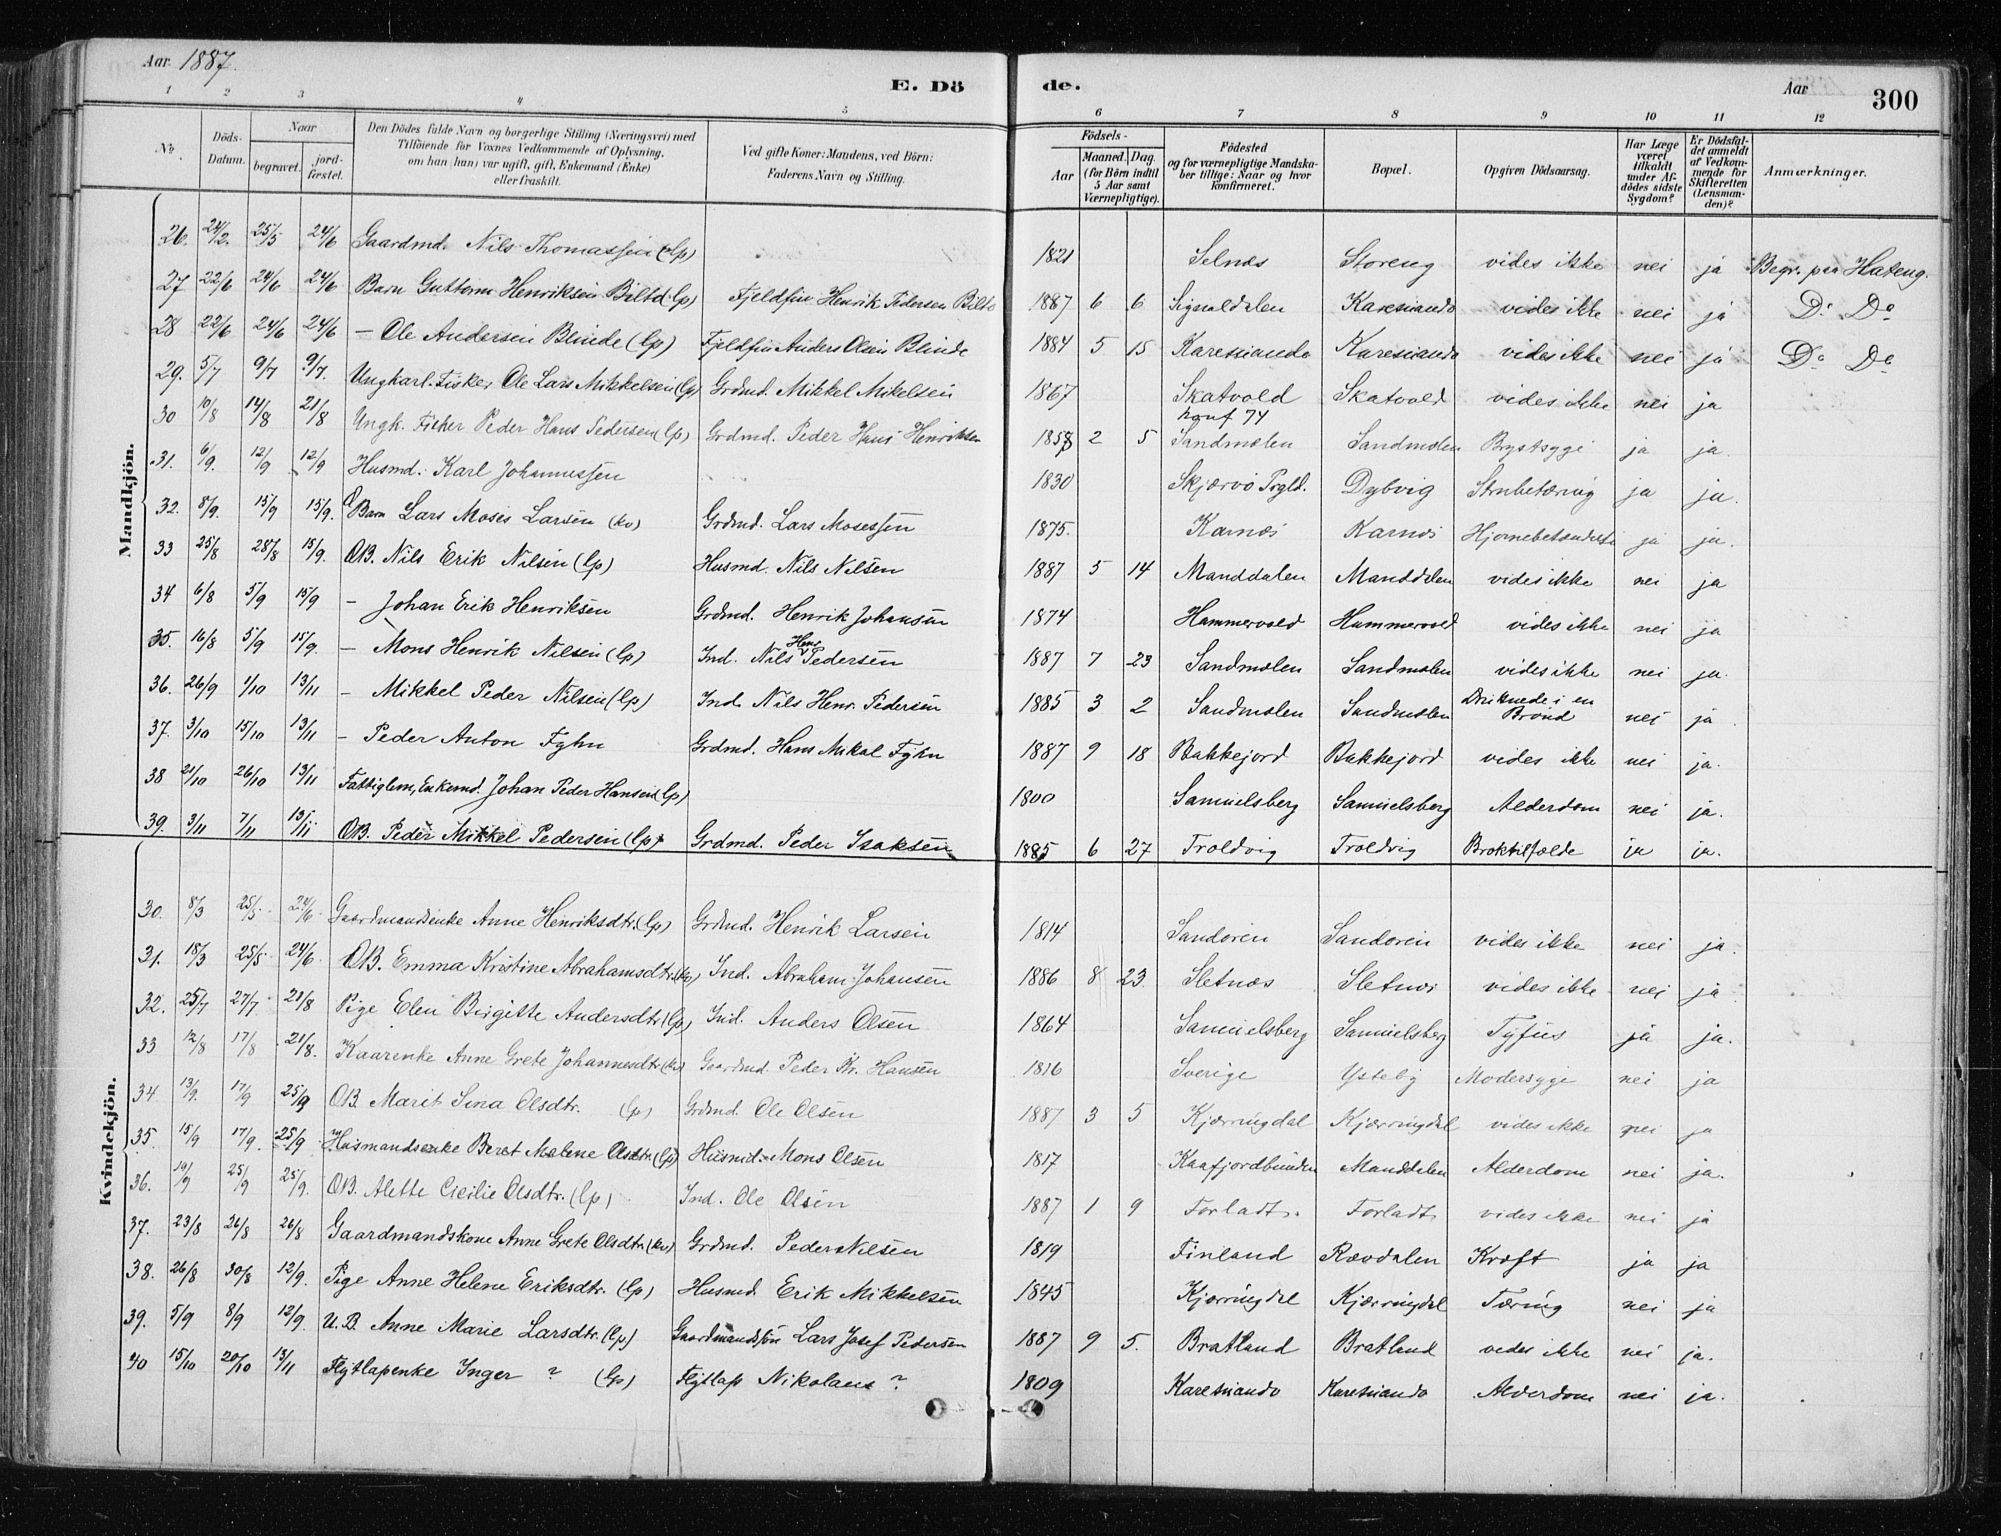 Aar 1887.
E. Dö de.
Aar 300
1 2 3 4 5 6 7 8 9 10 11 12
No.
Döds-Datum.
Naar
begravet.
jord-fæstet.
Den Dödes fulde Navn og borgerlige Stilling (Næringsvei) med
Tilföiende for Voxnes Vedkommende af Oplysning,
om han (hun) var ugift, gift, Enkemand (Enke)
eller fraskilt.
Ved gifte Koner: Mandens, ved Börn:
Faderens Navn og Stilling.
Födsels-
Aar
Maaned. Dag.
(for Börn indtil
5 Aar samt
Værnepligtige).
Födested
og for værnepligtige Mandska-
ber tillige: Naar og hvor
konfirmeret.
Bopæl.
Opgiven Dödsaarsag.
Har Læge
været
tilkaldt
under Af-
dödes sidste
Sygdom?
Er Dödsfal-
det anmeldt
af Vedkom-
mende for
Skifteretten
(Lensman-
den)?
Anmærkninger.
Mandkjön.
26. 24/2. 25/5 24/6 Gaardmd. Nils Thomassen (lp) 1821 Selnæs Storeng vides ikke nei ja Begr. paa Hateng.
27 22/6 24/6 24/6 Barn Guttorm Henriksen Bilto (lp) Fjeldfin Henrik Pedersen Bilto 1887 6 6 Signaldalen Karesuando vides ikke nei ja Do Do
28 22/6 24/6 24/6 – Ole Andersen Blinde (lp) Fjeldfin Anders Olsen Blinde 1884 5 15 Karesuando Karesuando vides ikke nei ja Do Do
29. 5/7 9/7 9/7. Ungkarl. Fisker, Ole Lars Mikkelsen (lp) Grdmd. Mikkel Mikelsen 1867 Skatvold Skatvold vides ikke nei ja
30 10/8 14/8 21/8 Ungk. Fisker Peder Hans Pedersen (lp) Grdmd. Peder Hans Henriksen 1858 2 5 konf 74 Sandmælen Sandmælen Brystsyge ja ja.
31. 6/9. 12/9 12/9 Husmd. Karl Johannessen 1830 Skjærvö Prgld. Dybvig Strubetæring ja ja.
32. 8/9. 15/9 15/9. Barn Lars Moses Larsen (kv) Grdmd. Lars Mosessen 1875. Karnæs Karnæs ja ja.
33 25/8 28/8 15/9. OB. Nils Erik Nilsen (lp) Husmd. Nils Nilsen 1887 5 14 Manddalen Manddalen vides ikke nei ja
34 6/8 5/9 15/9 – Johan Erik Henriksen Grdmd. Henrik Johansen 1874 Hammervold Hammervold vides ikke nei ja
35. 16/8 5/9 15/9. – Mons Henrik Nilsen (lp) Ind. Nils Henr. Pedersen 1887 7 23 Sandmælen Sandmælen vides ikke nei ja.
36. 26/9 1/10 13/11 – Mikkel Peder Nilsen (lp) Ind. Nils Henr. Pedersen 1885 3 2 Sandmælen Sandmælen Druknede i en Brönd nei ja
37. 3/10 15/10 13/11 – Peder Anton Fyhn Grdmd. Hans Mikal Fyhn 1887 9 18 Bakkejord Bakkejord vides ikke nei ja.
38 21/10 26/10 13/11 Fattiglem, Enkemd. Johan Peder Hansen (lp) 1800 Samuelsberg Samuelsberg Alderdom nei ja.
39. 3/11 7/11 13/11 OB. Peder Mikkel Pedersen (lp) Grdmd. Peder Isaksen 1885 6 27 Troldvig Troldvig Broktilfælde ja ja.
Kvindekjön.
30. 8/3 25/5 24/6. Gaardmandsenke Anne Henriksdtr. (lp) Grdmd. Henrik Larsen 1814 Sandören Sandören vides ikke nei ja.
31. 18/3 25/5. 24/6 OB. Emma Kristine Abrahamsdtr. (kv) Ind. Abraham Johansen 1886 8 23. Sletnæs Sletnæs vides ikke nei ja
32. 25/7 27/7 21/8 Pige Elen Birgitte Andersdtr. (lp) Ind. Anders Olsen 1864 Samuelsberg Samuelsberg Tyfus ja ja.
33 12/8 17/8 21/8. Kaarenke Anne Grete Johannesdtr. (kv) Gaardmd Peder Kr. Hansen 1816 Sverige Ysteby Modersyge nei ja
34. 13/9. 17/9 25/9 OB. Marit Sina Olsdtr. (lp) Grdmd. Ole Olsen 1887 3 5 Kjærringdal Kjærringdal vides ikke nei ja
35. 15/9 17/9. 25/9. Husmandsenke Beret Malene Olsdtr. (lp) Husmd. Mons Olsen 1817 Kaafjordbunden Manddalen Alderdom nei ja.
36. 19/9 25/9 25/9. OB. Alette Cicilie Olsdtr. (lp) Ind. Ole Olsen 1887 1 9 Forladt. Forladt vides ikke nei ja
37. 23/8 26/8 26/8 Gaardmandskone Anne Grete Olsdtr. (kv) Grdmd. Peder Nilsen 1819 Finland Rævdalen Kræft ja ja
38. 26/8 30/8 12/9. Pige Anne Helene Eriksdtr. (lp) Husmd Erik Mikkelsen 1845 Kjærringdal Kjærringdal Tæring nei ja
39. 5/9 8/9 12/9. U.B. Anne Marie Larsdtr. (lp) Gaardmandssön Lars Josef Pedersen 1887 9 5. Bratland Bratland vides ikke nei ja.
40 15/10 20/10 13/11 Flytlapenke Inger ? (lp) Flytlap Nikolaus ? 1809 Karesuando Karesuando Alderdom nei ja.